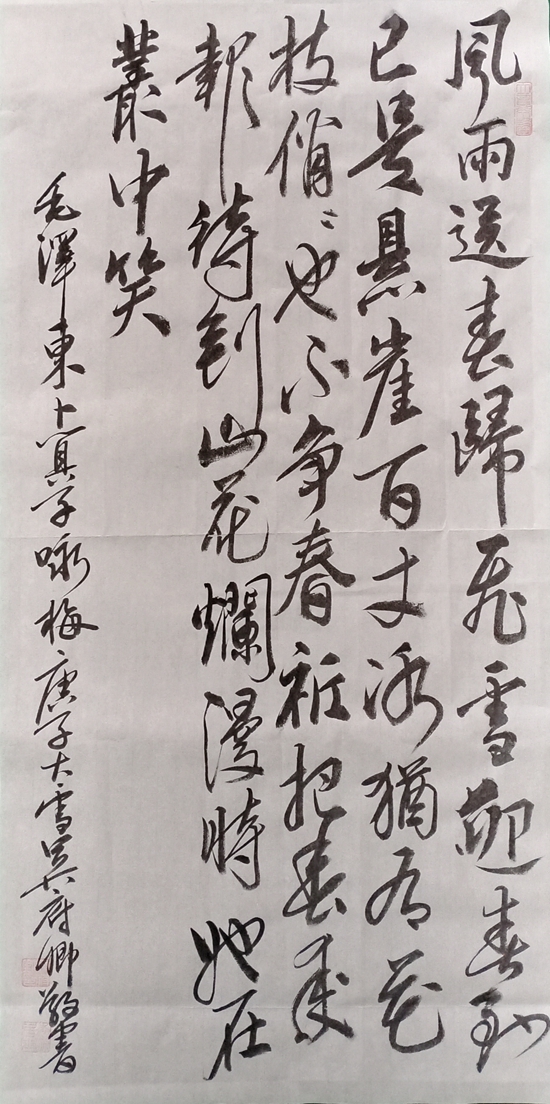 風雨送春歸飛雪迎春到
已是悬崖百丈冰猶有花
枝俏〻也不争春衹把春来
報待到山花爛漫時她在
叢中笑
毛澤東卜算子咏梅庚子大雪吴府卿敬書